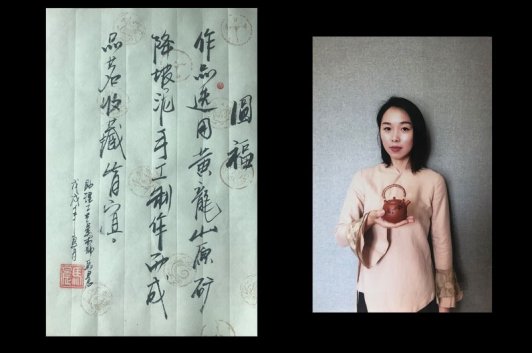 圓福
作品选用黄龍山原矿
降坡泥手工制作而成
品茗收藏皆宜。
助理工艺美术师
戊戌年